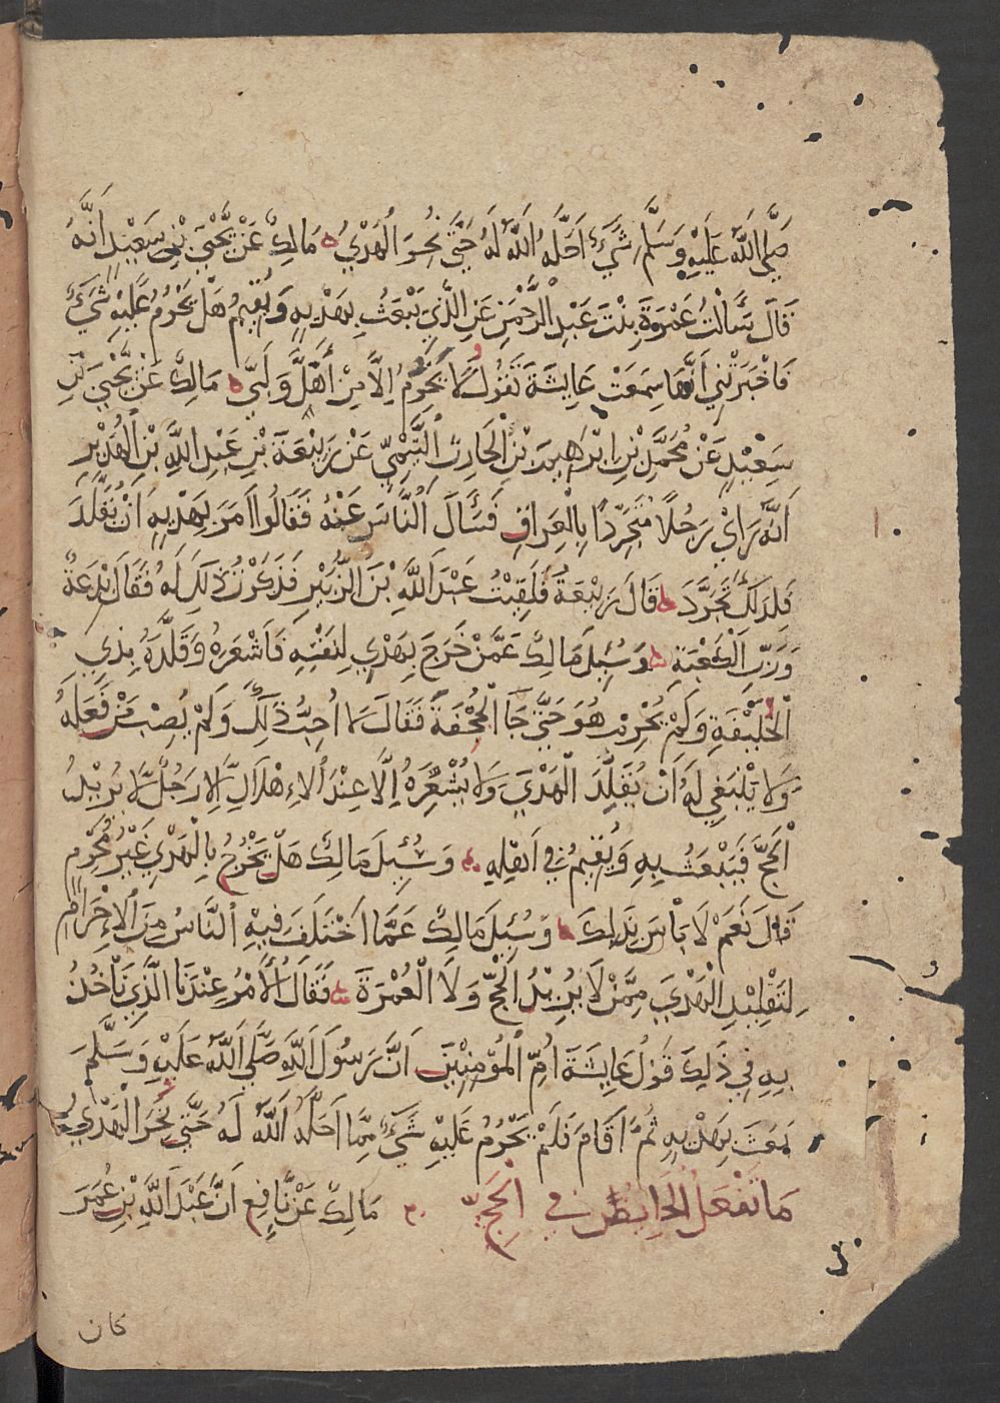 صَلَّي اللَّهُ عَلَيْهِ وَسَلَّمَ شَيْءٌ اَحَلَّهُ اللَّهُ لَهُ حَتَّي نُحِرَ الْهَدْيُ مَالِكٌ عَنْ يَّحْيَيَ بْنِ سَعِيْدٍ اَنَّهُ
قَالَ سَأَلْتُ عَمْرَةَ بِنْتَ عَبْدِ الرَّحْمٰنِ عَنِ الَّذِي يَبْعَثُ بِهَدْيِهِ وَيُقِيمُ هَلْ يَحْرُمُ عَلَيْهِ شَيْءٌ
فَاخْبَرَتْنِي اَنَّهَا سَمِعَتْ عَايِشَةَ تَقُولُ لَا يَحْرُمُ اِلَّا مَنْ أَهَلَّ وَلَبَّي مَالِكٌ عَنْ يَّحْيَيَ بْنِ
سَعِيْدٍ عَنْ مُحَمَّدِ بْنِ اِبْرَاهِيمَ بْنِ الْحَارِثِ التَّيْمِيِّ عَنْ رَبِيْعَةَ بْنِ عَبْدِ اللَّهِ بْنِ الْهُدَيْرِ
اَنَّهُ رَاَيْ رَجُلًا مُتَجَرِّدًا بِالْعِرَاقِ فَسَأَلَ النَّاسَ عَنْهُ فَقَالُوا اَمَرَ بِهَدْيِهِ اَنْ يُّقَلَّدَ
فَلِذَلِكَ تَجَرَّدَ قَالَ رَبِيْعَةُ فَلَقِيْتُ عَبْدَ اللَّهِ بْنَ الزُّبَيْرِ فَذَكَرْتُ ذَلِكَ لَهُ فَقَالَ بِدْعَةٌ
وَرَبِّ الْكَعْبَةِ وَسُئِلَ مَالِكٌ عَمَّنْ خَرَجَ بِهَدْيٍ لِنَفْسِهِ فَاَشْعَرَهُ وَقَلَّدَهُ بِذِي
الْحُلَيْفَةِ وَلَمْ يُحْرِمْ هُوَ حَتَّي جَا الْجُحْفَةَ فَقَالَ لَا اُحِبُّ ذَلِكَ وَلَمْ يُصِبْ مَنْ فَعَلَهُ
وَلَا يَنْبَغِي لَهُ اَنْ يُقَلِّدَ الْهَدْيَ وَلَا يُشْعِرَهُ اِلَّا عِنْدَ الْاِهْلَالِ اِلَّا رَجُلٌ لَّا يُرِيْدُ
الْحَجَّ فَيَبْعَثُ بِهِ وَيُقِيْمُ فِي اَهْلِهِ وَسُئِلَ مَالِكٌ هَلْ يَخْرُجُ بِالْهَدْيِ غَيْرُ مُحْرِمٍ
قَالَ نَعَمْ لَا بَأْسَ بِذَلِكَ وَسُئِلَ مَالِكٌ عَمَّا اخْتَلَفَ فِيْهِ النَّاسُ مِنَ الْاِحْرَامِ
لِتَقْلِيْدِ الْهَدْيِ مِمَّنْ لَا يُرِيْدُ الْحَجَّ وَلَا الْعُمْرَةَ فَقَالَ الْأَمْرُ عِنْدَنَا الَّذِي نَاْخُذُ
بِهِ فِي ذَلِكَ قَوْلُ عَايِشَةَ اُمِّ الْمُؤْمِنِيْنَ اَنَّ رَسُولَ اللَّهِ صَلَّي اللَّهُ عَلَيْهِ وَسَلَّمَ
بَعَثَ بِهَدْيِهِ ثُمَّ اَقَامَ فَلَمْ يَحْرُمْ عَلَيْهِ شَيْءٌ مِمَّا اَحَلَّهُ اللَّهُ لَهُ حَتَّي نُحِرَ الْهَدْيُ
مَا تَفْعَلُ الْحَايِضُ فِي الْحَجِّ مَالِكٌ عَنْ نَّافِعٍ اَنَّ عَبْدَ اللَّهِ بْنِ عُمَرَ
كان